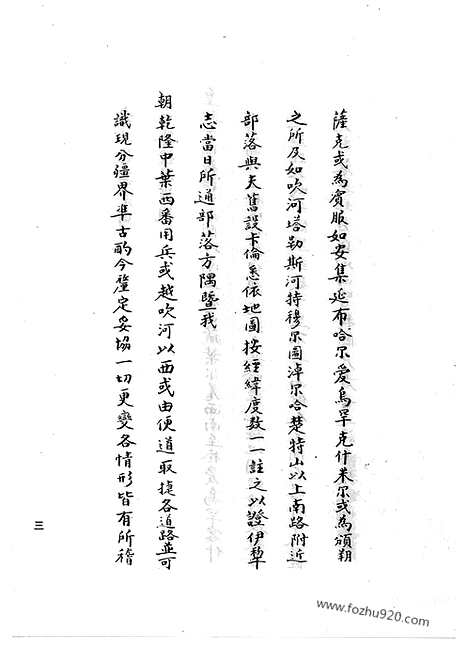 薩克或為賓服如安集延布哈尔愛烏罕克什米尔或為頒朔
之所及如吹河塔勒斯河特穆尔圖淖尔哈楚特山以上南路附近
部落與夫舊設卡倫悉依地圖按經緯度數一一註之以證伊犂
志當日所通部落方隅暨我
朝乾隆中葉西番用兵或越吹河以西或由便道取捷各道路並可
識現分疆界準古酌今釐定妥協一切更變各情形皆有所稽
三
www.fozhu920.com